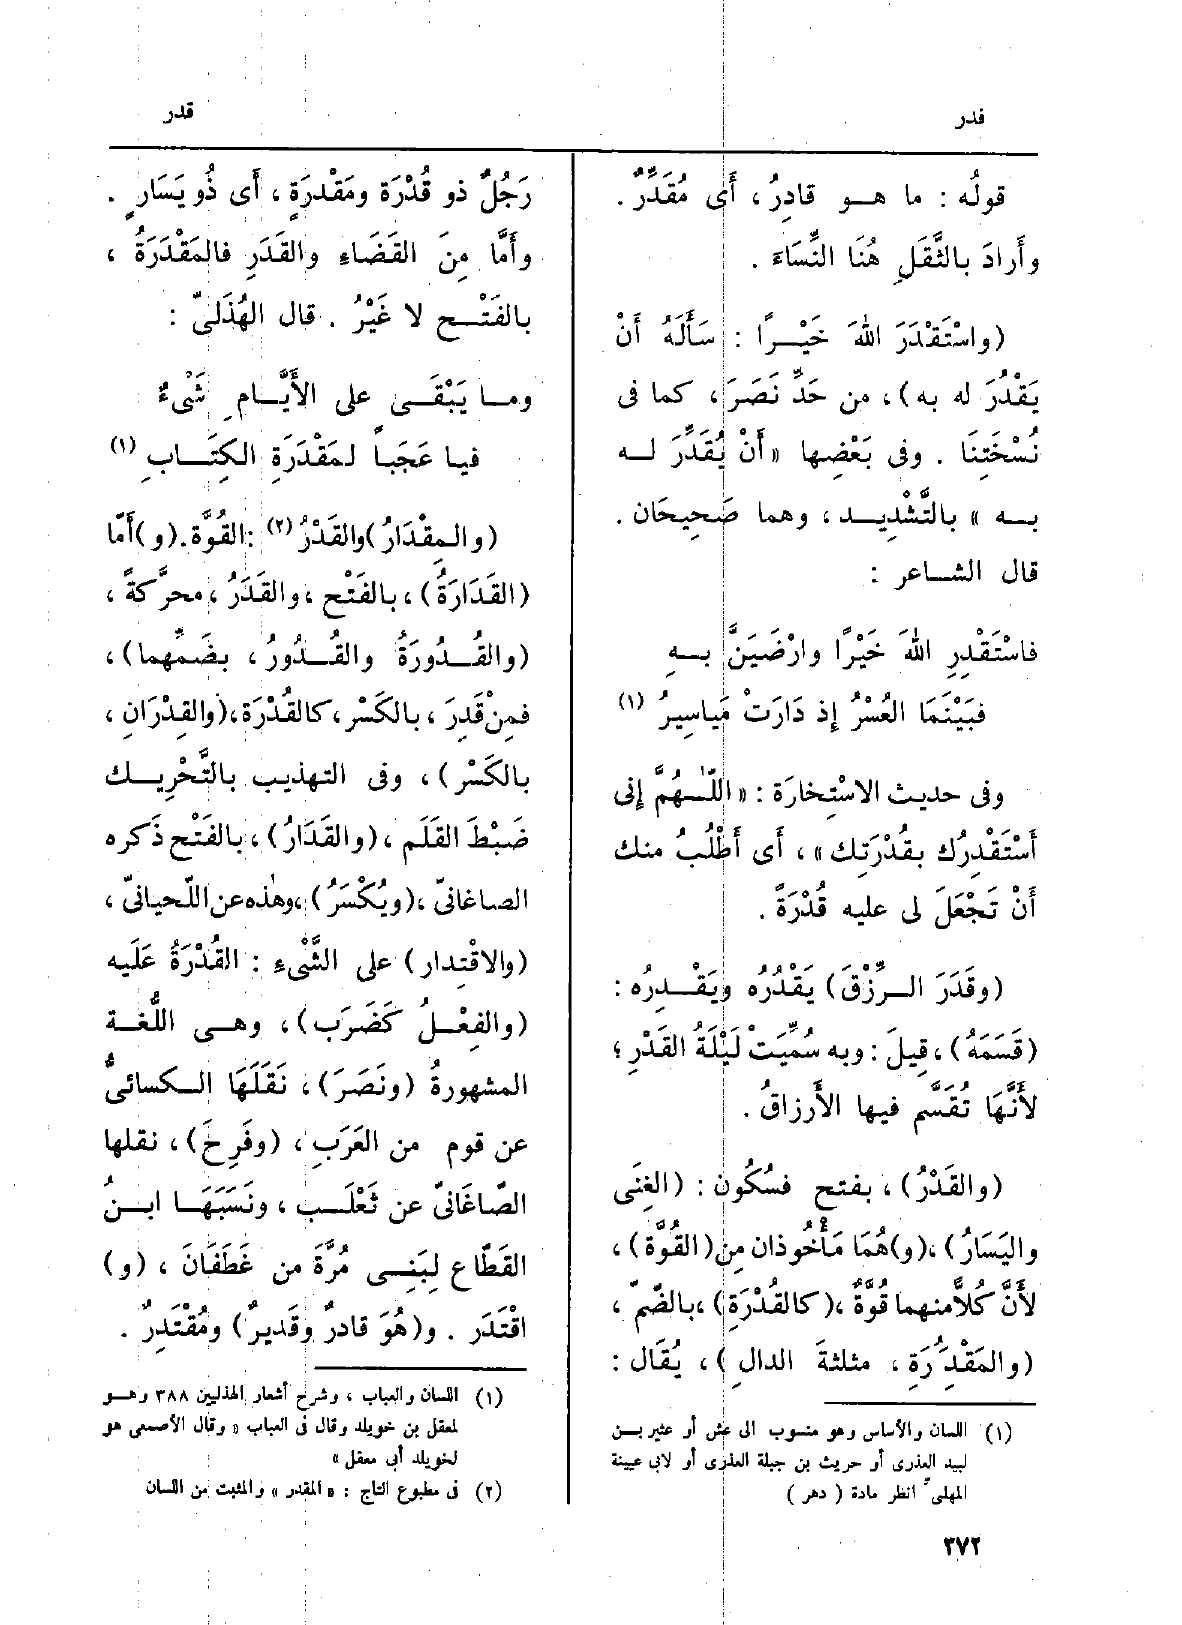 قدر
قدر
قولُه : ما هـو قادِرُ ، أَى مُقَدَّرٌ .
وأَرادَ بالثَّقَلِ هُنَا النِّسَاءَ .
(واسْتَقْدَرَ اللهَ خَيْـرًا : سَأَلَهُ أَنْ
يَقْدُرَ له به) ، من حَدِّ نَصَرَ ، كما فى
نُسْخَتِنَا . وفى بَعْضِها « أَنْ يُقَدِّرَ لـه
بـه » بالتَّشْدِيـد ، وهما صَحِيحَان .
قال الشـاعر :
فاسْتَقْدِرِ اللهَ خَيْرًا وارْضَيَنَّ بـهِ
فبَيْنَمَا العُسْرُ إِذ دَارَتْ مَياسِيرُ (١)
وفى حديث الاسْتِخارَة : « اللّٰـهُمَّ إِنى
أَسْتَقْدِرُك بقُدْرَتِك » ، أَى أَطْلُبُ منك
أَنْ تَجْعَلَ لى عليه قُدْرَةً .
(وقَدَرَ الـرِّزْقَ) يَقْدُرُه ويَقْـدِرُه :
(قَسَمَهُ) ، قِيلَ : وبه سُمِّيَت لَيْلَةُ القَدْرِ ؛
لأَنَّهَا تُقَسَّم فيها الأَرزاقُ .
(والقَدْرُ) ، بفتح فسُكُون : (الغِنَى
واليَسَارُ) ، (و)هُمَا مَأْخُوذان مِن (القُوَّة) ،
لأَنَّ كُلاًّ منهما قُوَّةٌ ، (كالقُدْرَةِ) ، بالضّمّ ،
(والمَقْدِرَُةِ ، مثلثةَ الدالِ ) ، يُقَال :
(١) اللسان والأساس وهو منسوب الى عش أو عثير بـن
لبيد العذرى أو حريث بن جبلة العذرى أو لابى عيينة
المهلبىّ انظر مادة ( دهر )
رَجُلٌ ذو قُدْرَة ومَقْدرَةٍ ، أَى ذُو يَسَارٍ .
وأَمَّا مِنَ القَضَاءِ والقَدَرِ فالمَقْدَرَةُ ،
بالفَتْـح لا غَيْرُ . قال الهُذَلىّ :
ومـا يَبْقَـى على الأَيَّـامِ شَىْءٌ
فيا عَجَباً لمَقْدَرَةِ الكِتَـابِ (١)
(والمِقْدَارُ) والقَدْرُ (٢) : القُوَّة . (و) أَمّا
(القَدَارَةُ) ، بالفَتْح ، والقَدَرُ ، محرَّكةً ،
(والقُـدُورَةُ والقُـدُورُ ، بضَمِّهما) ،
فمِنْ قَدِرَ ، بالكَسْر ، كالقُدْرَة ، (والقِدْرَانِ ،
بالكَسْرِ) ، وفى التهذيب بالتَّحْرِيـك
ضَبْطَ القَلَم ، (والقَدَارُ) ، بالفَتْح ذَكره
الصاغانىّ ، (ويُكْسَرُ) ، وهٰذه عن اللّحيانىّ ،
(والاقْتِدار) على الشَّىْءِ : القُدْرَةُ عَلَيه
(والفِعْـلُ كَضَرَب) ، وهـى اللُّغَـة
المشهورةُ (ونَصَرَ) ، نَقَلَهَا الـكسائىُّ
عن قوم من العَرَبِ ، (وفَرِحَ) ، نقلها
الصّاغَانىّ عن ثَعْلَـب ، ونَسَبَهَـا ابـنُ
القَطّاع لِبَنِـى مُرَّةَ من غَطَفَانَ ، (و)
اقْتَدَر . و(هُوَ قادرٌ وقَديرٌ) ومُقْتَدِرٌ .
(١) اللسان والعباب ، وشرح أشعار الهذليين ٣٨٨ وهـو
لمعقل بن خويلد وقال فى العباب « وقال الأصمعى هو
لخويلد أبى معقل »
(٢) فى مطبوع التاج : « المقدر » والمثبت من اللسان
٣٧٢